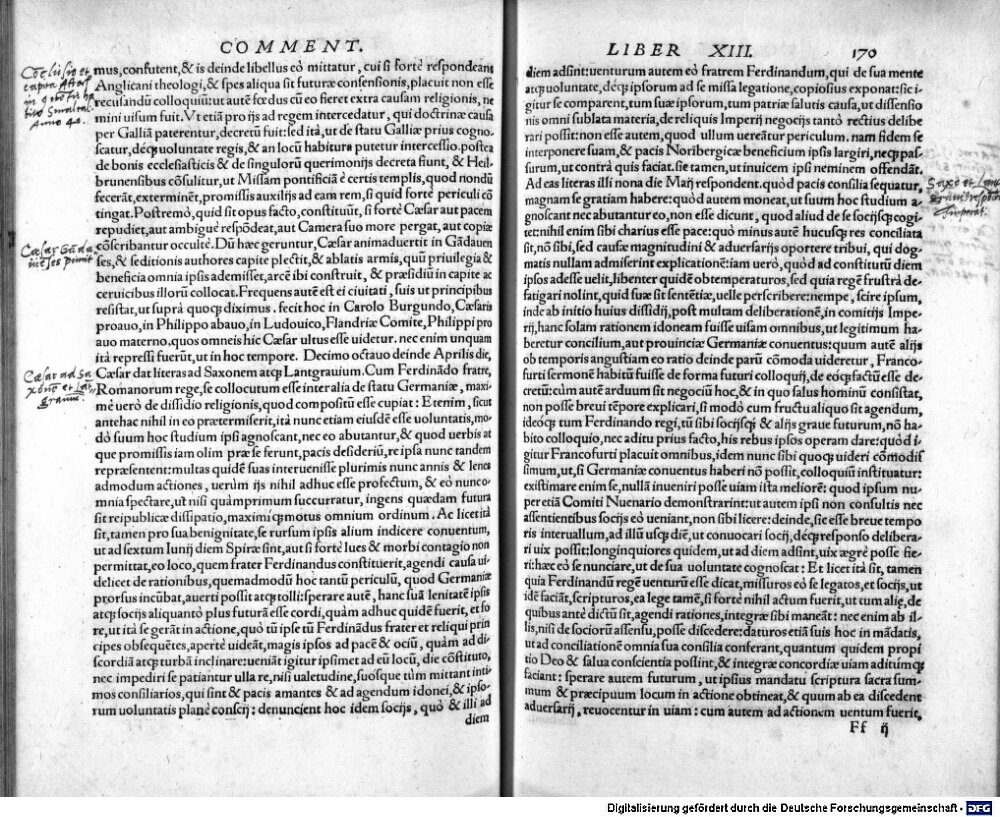 COMMENT.
mus, confutent, & is deinde libellus eò mittatur, cui si fortè respondeant
Anglicani theologi, & spes aliqua sit futuræ consensionis, placuit non esse
recusandū colloquiū: ut autē fœdus cū eo fieret extra causam religionis, ne
mini uisum fuit. Vt etiā pro ijs ad regem intercedatur, qui doctrinæ causa
per Galliā paterentur, decretū fuit: sed itá, ut de statu Galliæ prius cogno-
scatur, deq́; uoluntate regis, & an locū habitura putetur intercessio. postea
de bonis ecclesiasticis & de singulorū querimonijs decreta fiunt, & Heil-
brunensibus cōsulitur, ut Missam pontificiā è certis templis, quod nondū
fecerāt, exterminēt, promissis auxilijs ad eam rem, si quid fortè periculi cō
tingat. Postremò, quid sit opus facto, constituūt, si fortè Cæsar aut pacem
repudiet, aut ambiguè respōdeat, aut Camera suo more pergat, aut copiæ
cōscribantur occultè. Dū hæc geruntur, Cæsar animaduertit in Gādauen
ses, & seditionis authores capite plectit, & ablatis armis, quū priuilegia &
beneficia omnia ipsis ademisset, arcē ibi construit, & præsidiū in capite ac
ceruicibus illorū collocat. Frequens autē est ei ciuitati, suis ut principibus
resistat, ut suprà quoq; diximus. fecit hoc in Carolo Burgundo, Cæsaris
proauo, in Philippo abauo, in Ludouico, Flandriæ Comite, Philippi pro
auo materno. quos omneis hic Cæsar ultus esse uidetur. nec enim unquam
ità repressi fuerūt, ut in hoc tempore. Decimo octauo deinde Aprilis die,
Cæsar dat literas ad Saxonem atq; Lantgrauium. Cum Ferdinādo fratre,
Romanorum rege, se collocutum esse inter alia de statu Germaniæ, maxi-
mè uerò de dissidio religionis, quod compositū esse cupiat: Et enim, sicut
antehac nihil in eo prætermiserit, ità nunc etiam eiusdē esse uoluntatis, mo-
dò suum hoc studium ipsi agnoscant, nec eo abutantur, & quod uerbis at
que promissis iam olim præ se ferunt, pacis desideriū, re ipsa nunc tandem
repræsentent: multas quidē suas interuenisse plurimis nunc annis & lenes
admodum actiones, uerùm ijs nihil adhuc esse profectum, & eò nunc o-
mnia spectare, ut nisi quàmprimum succurratur, ingens quædam futura
sit reipublicæ dissipatio, maximíq; motus omnium ordinum. Ac licet itá
sit, tamen pro sua benignitate, se rursum ipsis alium indicere conuentum,
ut ad sextum Iunij diem Spiræ sint, aut si fortè lues & morbi contagio non
permittat, eo loco, quem frater Ferdinandus constituerit, agendi causa ui-
delicet de rationibus, quemadmodū hoc tantū periculū, quod Germaniæ
prorsus incūbat, auerti possit atq; tolli: sperare autē, hanc suā lenitatē ipsis
atq; socijs aliquantò plus futurā esse cordi, quàm adhuc quidē fuerit, et fo
re, ut ità se gerāt in actione, quò tū ipse tū Ferdinādus frater et reliqui prin
cipes obsequētes, apertè uideāt, magis ipsos ad pacē & ociū, quàm ad di-
scordiā atq; turbā inclinare: ueniāt igitur ipsimet ad eū locū, die cōstituto,
nec impediri se patiantur ulla re, nisi ualetudine, suosque tùm mittant inti-
mos consiliarios, qui sint & pacis amantes & ad agendum idonei, & ipso-
rum uoluntatis planè conscij: denuncient hoc idem socijs, quò & illi ad
diem
Cæsar ad Sa
LIBER XIII. 170
diem adsint: uenturum autem eò fratrem Ferdinandum, qui de sua mente
atq; uoluntate, deq́; ipsorum ad se missa legatione, copiosius exponat: sic i-
gitur se comparent, tum suæ ipsorum, tum patriæ salutis causa, ut dissensio
nis omni sublata materia, de reliquis Imperij negocijs tantò rectius delibe
rari possit: non esse autem, quod ullum uereātur periculum. nam fidem se
interponere suam, & pacis Noribergicæ beneficium ipsis largiri, neq; pas-
surum, ut contrà quis faciat. sic tamen, ut inuicem ipsi neminem offendāt.
Ad eas literas illi nona die Maij respondent. quòd pacis consilia sequatur,
magnam se gratiam habere: quòd autem moneat, ut suum hoc studium a-
gnoscant nec abutantur eo, non esse dicunt, quod aliud de se socijsq; cogi-
tet: nihil enim sibi charius esse pace: quò minus autē hucusq; res conciliata
sit, nō sibi, sed causæ magnitudini & aduersarijs oportere tribui, qui dog-
matis nullam admiserint explicationē: iam uerò, quòd ad constitutū diem
ipsos adesse uelit, libenter quidē obtemperaturos, sed quia regē frustrà de-
fatigari nolint, quid suæ sit sentētiæ, uelle perscribere: nempe, scire ipsum,
inde ab initio huius dissidij, post multam deliberationē, in comitijs Impe-
rij, hanc solam rationem idoneam fuisse uisam omnibus, ut legitimum ha-
beretur concilium, aut prouinciæ Germaniæ conuentus: quum autē alijs
ob temporis angustiam eo ratio deinde parū cōmoda uideretur, Franco-
furti sermonē habitū fuisse de forma futuri colloquij, de eóq; factū esse de-
cretū: cùm autē arduum sit negociū hoc, & in quo salus hominū consistat,
non posse breui tēpore explicari, si modò cum fructu aliquo sit agendum,
ideoq́; tum Ferdinando regi, tū sibi socijsq́; & alijs graue futurum, nō ha-
bito colloquio, nec aditu prius facto, his rebus ipsos operam dare: quòd i-
gitur Francofurti placuit omnibus, idem nunc sibi quoq; uideri cōmodis
simum, ut, si Germaniæ conuentus haberi nō possit, colloquiū instituatur:
existimare enim se, nullā inueniri posse uiam ista meliorē: quod ipsum nu-
per etiā Comiti Nuenario demonstrarint: ut autem ipsi non consultis nec
assentientibus socijs eò ueniant, non sibi licere: deinde, sic esse breue tempo
ris interuallum, ad illū usq; diē, ut conuocari socij, deq́; responso delibera-
ri uix possit: longinquiores quidem, ut ad diem adsint, uix ægrè posse fie-
ri: hæc eò se nunciare, ut de sua uoluntate cognoscat: Et licet itá sit, tamen
quia Ferdinandū regē uenturū esse dicat, missuros eò se legatos, et socijs, ut
idē faciāt, scripturos, ea lege tamē, si fortè nihil actum fuerit, ut tum alię, de
quibus antè dictū sit, agendi rationes, integræ sibi maneāt: nec enim ab il-
lis, nisi de sociorū assensu, posse discedere: daturos etiā suis hoc in mādatis,
ut ad conciliationē omnia sua consilia conferant, quantum quidem propi
tio Deo & salua conscientia possint, & integræ concordiæ uiam aditumq́;
faciant: sperare autem futurum, ut ipsius mandatu scriptura sacra sum-
mum & præcipuum locum in actione obtineat, & quum ab ea discedent
aduersarij, reuocentur in uiam: cum autem ad actionem uentum fuerit,
Ff ij
Digitalisierung gefördert durch die Deutsche Forschungsgemeinschaft - DFG